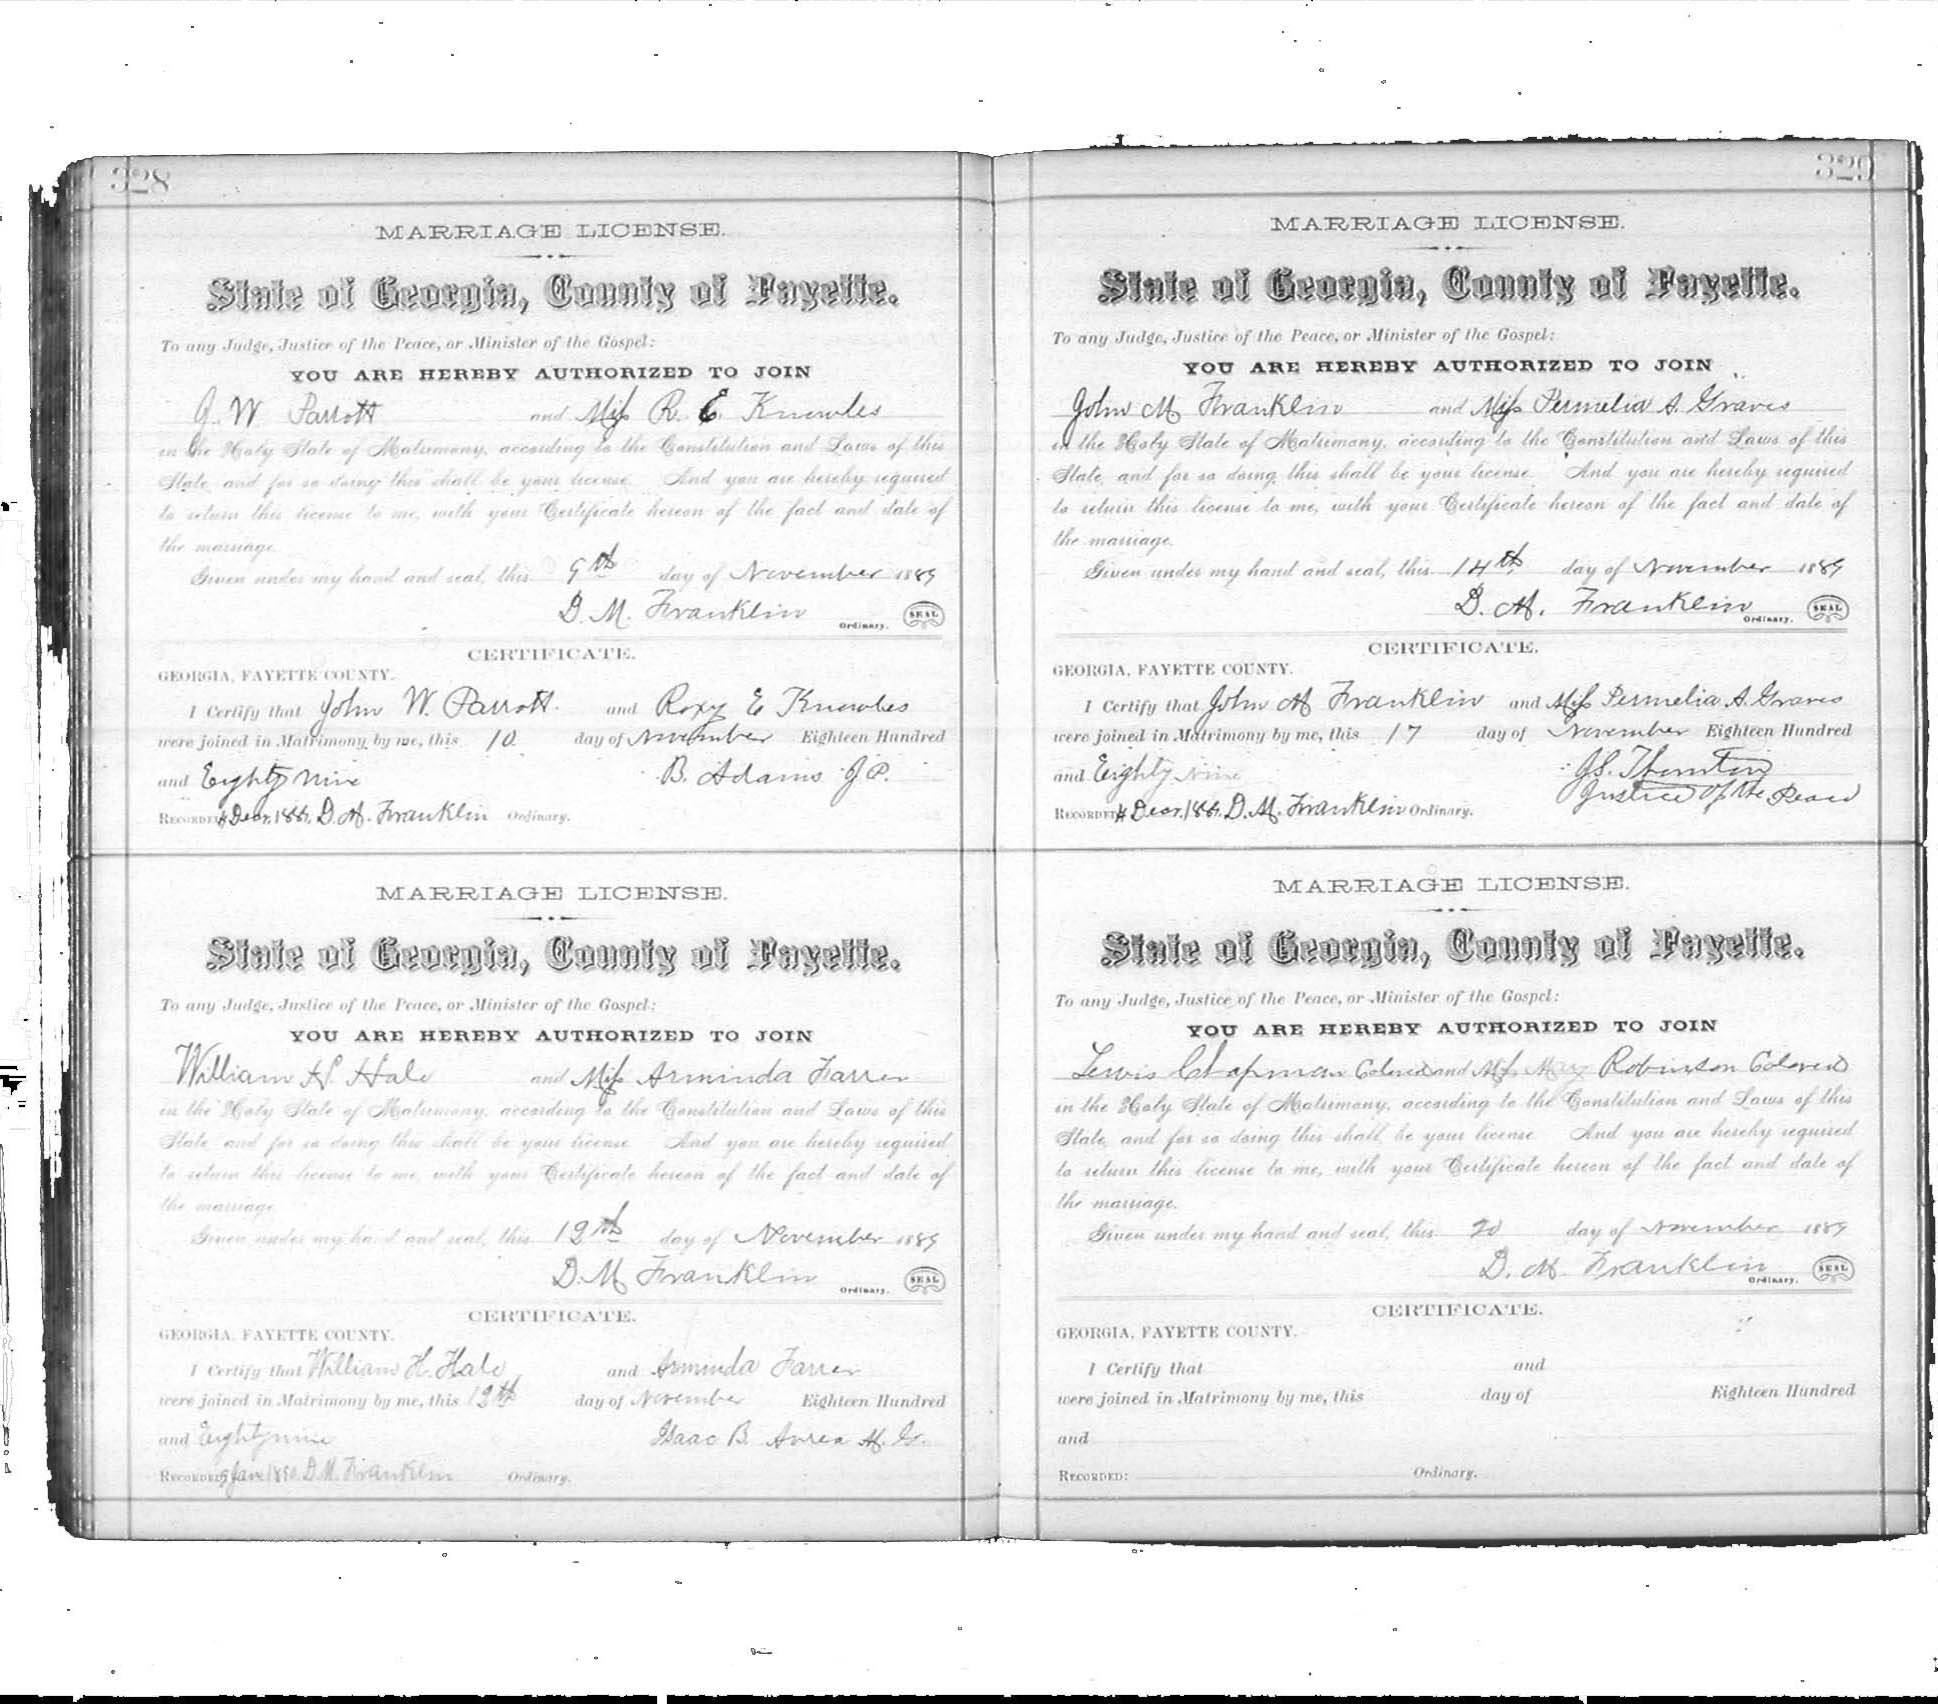 328
MARRIAGE LICENSE.
State of Georgia, County of Fayette.
To any Judge, Justice of the Peace, or Minister of the Gospel:
YOU ARE HEREBY AUTHORIZED TO JOIN
J. W Parrott and Miss R. E Knowles
in the Holy State of Matrimony, according to the Constitution and Laws of this
State, and for so doing this shall be your license. And you are hereby required
to return this license to me, with your Certificate hereon of the fact and date of
the marriage.
Given under my hand and seal, this 9th day of November 1889
D. M. Franklin
Ordinary. SEAL
CERTIFICATE.
GEORGIA, FAYETTE COUNTY.
I Certify that John W. Parrott. and Roxy E Knowles
were joined in Matrimony by me, this 10 day of November Eighteen Hundred
and Eighty nine B. Adams J P.
RECORDED 1889. D. M. Franklin Ordinary.
MARRIAGE LICENSE.
State of Georgia, County of Fayette.
To any Judge, Justice of the Peace, or Minister of the Gospel:
YOU ARE HEREBY AUTHORIZED TO JOIN
William H. Hale and Miss Arminda Farrer
in the Holy State of Matrimony, according to the Constitution and Laws of this
State, and for so doing this shall be your license. And you are hereby required
to return this license to me, with your Certificate hereon of the fact and date of
the marriage.
Given under my hand and seal, this 12th day of November 1889
D. M Franklin
Ordinary. SEAL
CERTIFICATE.
GEORGIA, FAYETTE COUNTY.
I Certify that William H. Hale and Arminda Farrer
were joined in Matrimony by me, this 12th day of November Eighteen Hundred
and Eighty nine Isaac B. M. G.
RECORDED Jan 1890. D. M. Franklin Ordinary.
329
MARRIAGE LICENSE.
State of Georgia, County of Fayette.
To any Judge, Justice of the Peace, or Minister of the Gospel:
YOU ARE HEREBY AUTHORIZED TO JOIN
John M Franklin and Miss Permelia A. Graves
in the Holy State of Matrimony, according to the Constitution and Laws of this
State, and for so doing this shall be your license. And you are hereby required
to return this license to me, with your Certificate hereon of the fact and date of
the marriage.
Given under my hand and seal, this 14th day of November 1889
D. M. Franklin
Ordinary. SEAL
CERTIFICATE.
GEORGIA, FAYETTE COUNTY.
I Certify that John M Franklin and Miss Permelia A. Graves
were joined in Matrimony by me, this 17 day of November Eighteen Hundred
and Eighty Nine J. S. Thornton
Justice of the Peace
RECORDED 1889. D. M. Franklin Ordinary.
MARRIAGE LICENSE.
State of Georgia, County of Fayette.
To any Judge, Justice of the Peace, or Minister of the Gospel:
YOU ARE HEREBY AUTHORIZED TO JOIN
Lewis Chapman Colored and Miss May Robinson Colored
in the Holy State of Matrimony, according to the Constitution and Laws of this
State, and for so doing this shall be your license. And you are hereby required
to return this license to me, with your Certificate hereon of the fact and date of
the marriage.
Given under my hand and seal, this 20 day of November 1889
D. M. Franklin
Ordinary. SEAL
CERTIFICATE.
GEORGIA, FAYETTE COUNTY.
I Certify that and
were joined in Matrimony by me, this day of Eighteen Hundred
and
RECORDED: Ordinary.